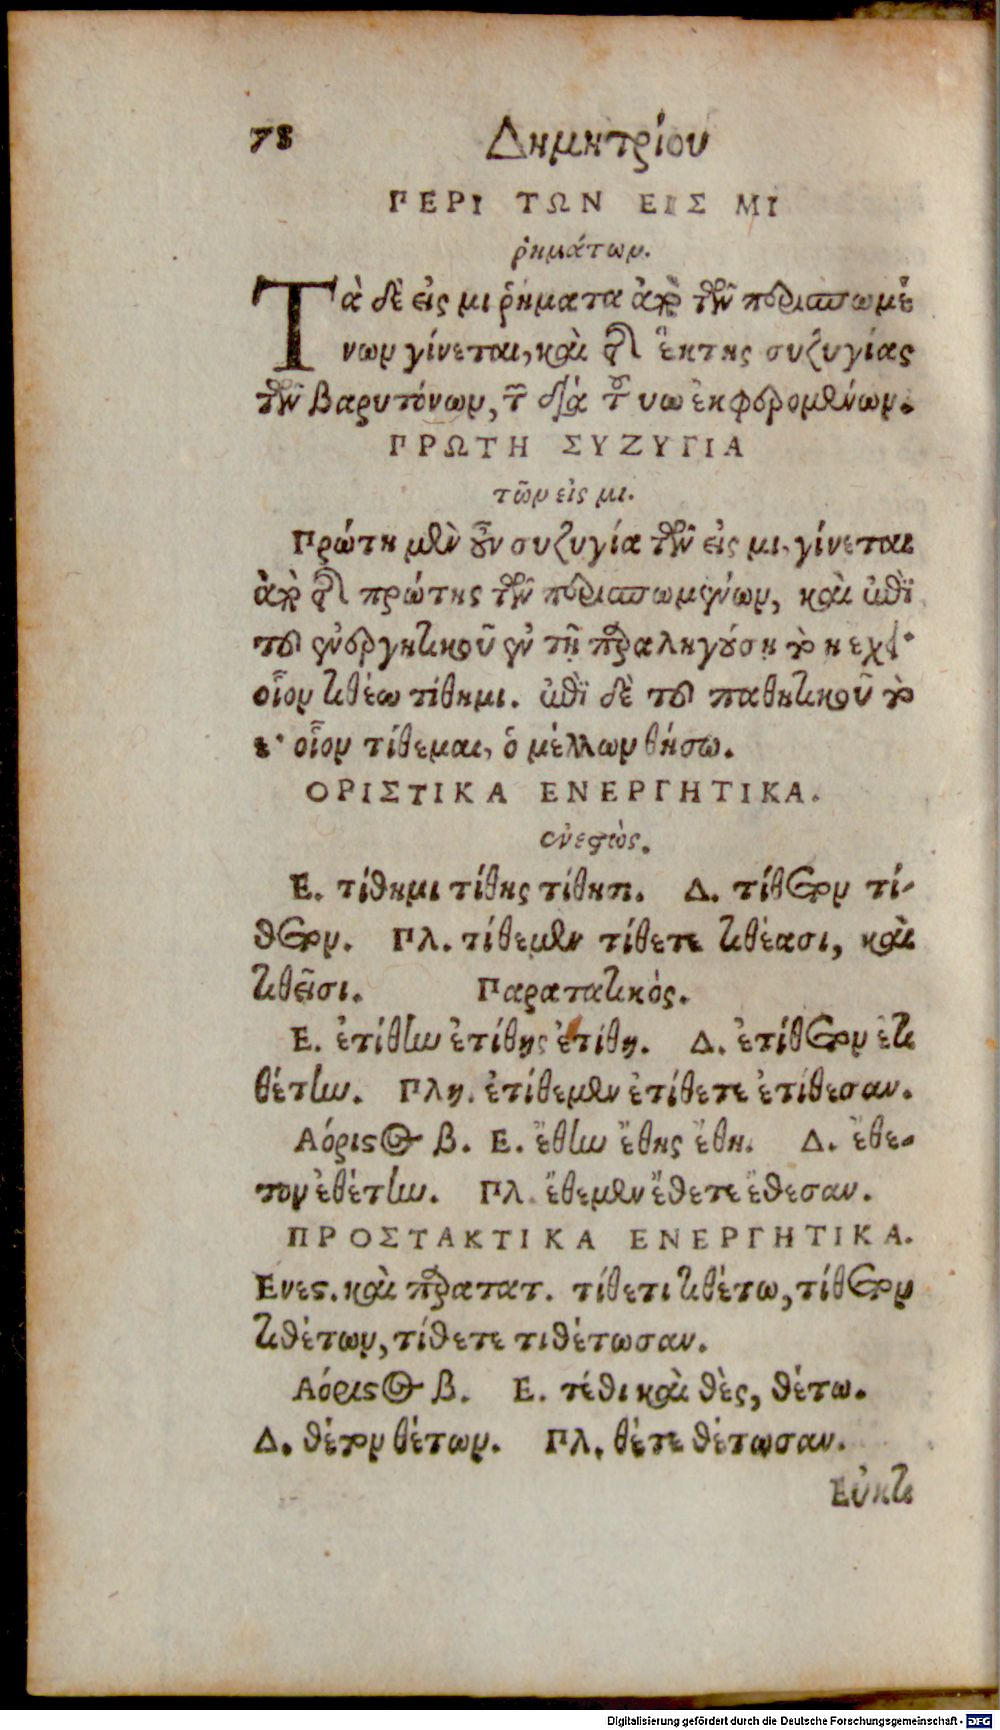 78 Δημητρίου
ΠΕΡΙ ΤΩΝ ΕΙΣ ΜΙ
ῥημάτων.
Τὰ δὲ εἰς μι ῥήματα ἀπὸ τῶν περισπωμέ
νων γίνεται, καὶ τῆς ἕκτης συζυγίας
τῶν βαρυτόνων, τῶν διὰ τοῦ υω ἐκφερομένων.
ΠΡΩΤΗ ΣΥΖΥΓΙΑ
τῶν εἰς μι.
Πρώτη μὲν οὖν συζυγία τῶν εἰς μι, γίνεται
ἀπὸ τῆς πρώτης τῶν περισπωμένων, καὶ ἐπὶ
τοῦ ἐνεργητικοῦ ἐν τῇ παραληγούσῃ τὸ η ἔχει·
οἷον τιθέω τίθημι. ἐπὶ δὲ τοῦ παθητικοῦ τὸ
ε· οἷον τίθεμαι, ὁ μέλλων θήσω.
ΟΡΙΣΤΙΚΑ ΕΝΕΡΓΗΤΙΚΑ.
ἐνεστώς.
Ε. τίθημι τίθης τίθητι. Δ. τίθετον τί-
θετον. Πλ. τίθεμεν τίθετε τιθέασι, καὶ
τιθεῖσι. Παρατατικός.
Ε. ἐτίθην ἐτίθης ἐτίθη. Δ. ἐτίθετον ἐτι
θέτην. Πλη. ἐτίθεμεν ἐτίθετε ἐτίθεσαν.
Αόριστος β. Ε. ἔθην ἔθης ἔθη. Δ. ἔθε-
τον ἐθέτην. Πλ. ἔθεμεν ἔθετε ἔθεσαν.
ΠΡΟΣΤΑΚΤΙΚΑ ΕΝΕΡΓΗΤΙΚΑ.
Ενεστ. καὶ παρατατ. τίθετι τιθέτω, τίθετον
τιθέτων, τίθετε τιθέτωσαν.
Αόριστος β. Ε. τέθι καὶ θὲς, θέτω.
Δ. θέτον θέτων. Πλ. θέτε θέτωσαν.
Εὐκτι
Digitalisierung gefördert durch die Deutsche Forschungsgemeinschaft - DFG